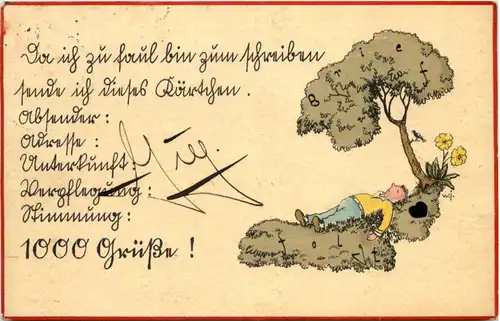 Da ich zu faul bin zum schreiben
sende ich dieses Kärtchen.
Absender:
Adresse:
Unterkunft:
Verpflegung:
Stimmung:
1000 Grüße!
Brief
folgt